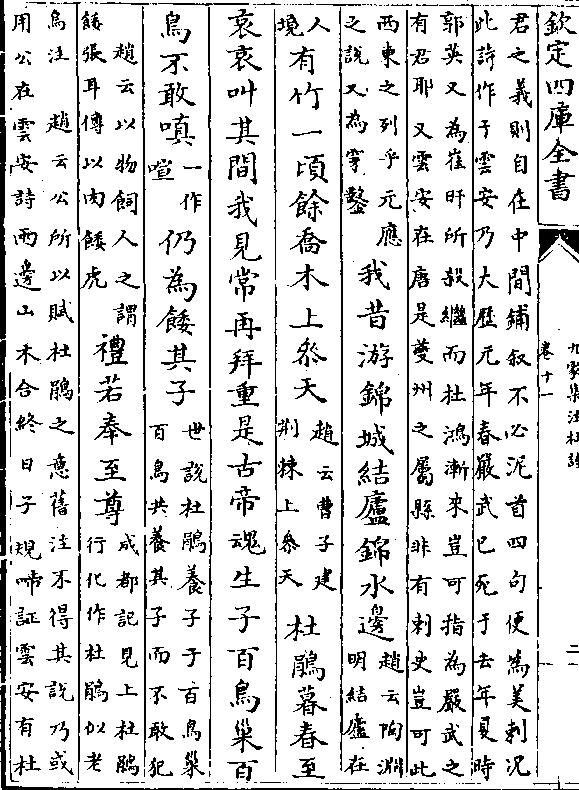 欽定四庫全書
九家集注杜詩
卷十一
二
君之義則自在中間鋪叙不必泥首四句便為美刺况
此詩作于雲安乃大歴元年春嚴武已死于去年夏時
郭英乂為崔旰所殺繼而杜鴻漸來豈可指為嚴武之
有君耶又雲安在唐是夔州之屬縣非有刺史豈可此
西東之列乎元應
之説又為穿鑿
我昔游錦城結廬錦水邊
趙云陶淵
明結廬在
人
境
有竹一頃餘喬木上參天
趙云曹子建
荆棘上參天
杜鵑暮春至
哀哀叫其間我見常再拜重是古帝魂生子百鳥巢百
鳥不敢嗔
一作
喧
仍為餧其子
世説杜鵑養子于百鳥巢
百鳥共養其子而不敢犯
趙云以物飼人之謂
餧張耳傳以肉餧虎
禮若奉至尊
成都記見上杜鵑
行化作杜鵑似老
烏注 趙云公所以賦杜鵑之意舊注不得其説乃或
用公在雲安詩兩邊山木合終日子規啼証雲安有杜